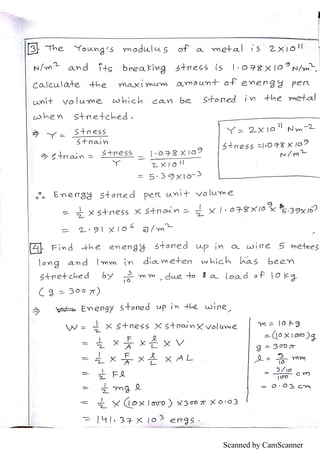 3. The Young's modulus of a metal is 2x10¹¹
N/m² and its breaking stness is 1.078 x 10⁹ N/m².
Calculate the maximum amount of energy pen
unit volume which can be stoned in the metal
when stnetched.
⇒ Y = Stness / Stnain
⇒ Stnain = Stness / Y = 1.078 x 10⁹ / 2 x 10¹¹
= 5.39x10⁻³
Y = 2 x 10¹¹ Nm⁻²
Stness = 1.078 x 10⁹ N/m²
∴ Enengy stoned pen unit volume
= 1/2 x stness x Stnain = 1/2 x 1.078x10⁹ x 5.39x10³
= 2.91 x 10⁶ J/m²
4. Find the enengy stoned up in a wine 5 metnes
long and 1mm in diameten which has been
stnetched by 3/10 mm, due to a load of 10kg
(g = 300π)
⇒ Enengy stoned up in the wine,
W = 1/2 x stness x stnain x volume
= 1/2 x F/A x l/L x V
= 1/2 x F/A x l/L x AL
= 1/2 Fl
= 1/2 mgl
= 1/2 x (10x1000) x300π x0.03
= 141.37 x 10³ engs.
m = 10kg
= (10x1000)g
g = 300π
l = 3/10 mm
= 3/10 / 100 cm
= 0.03 cm
Scanned by CamScanner